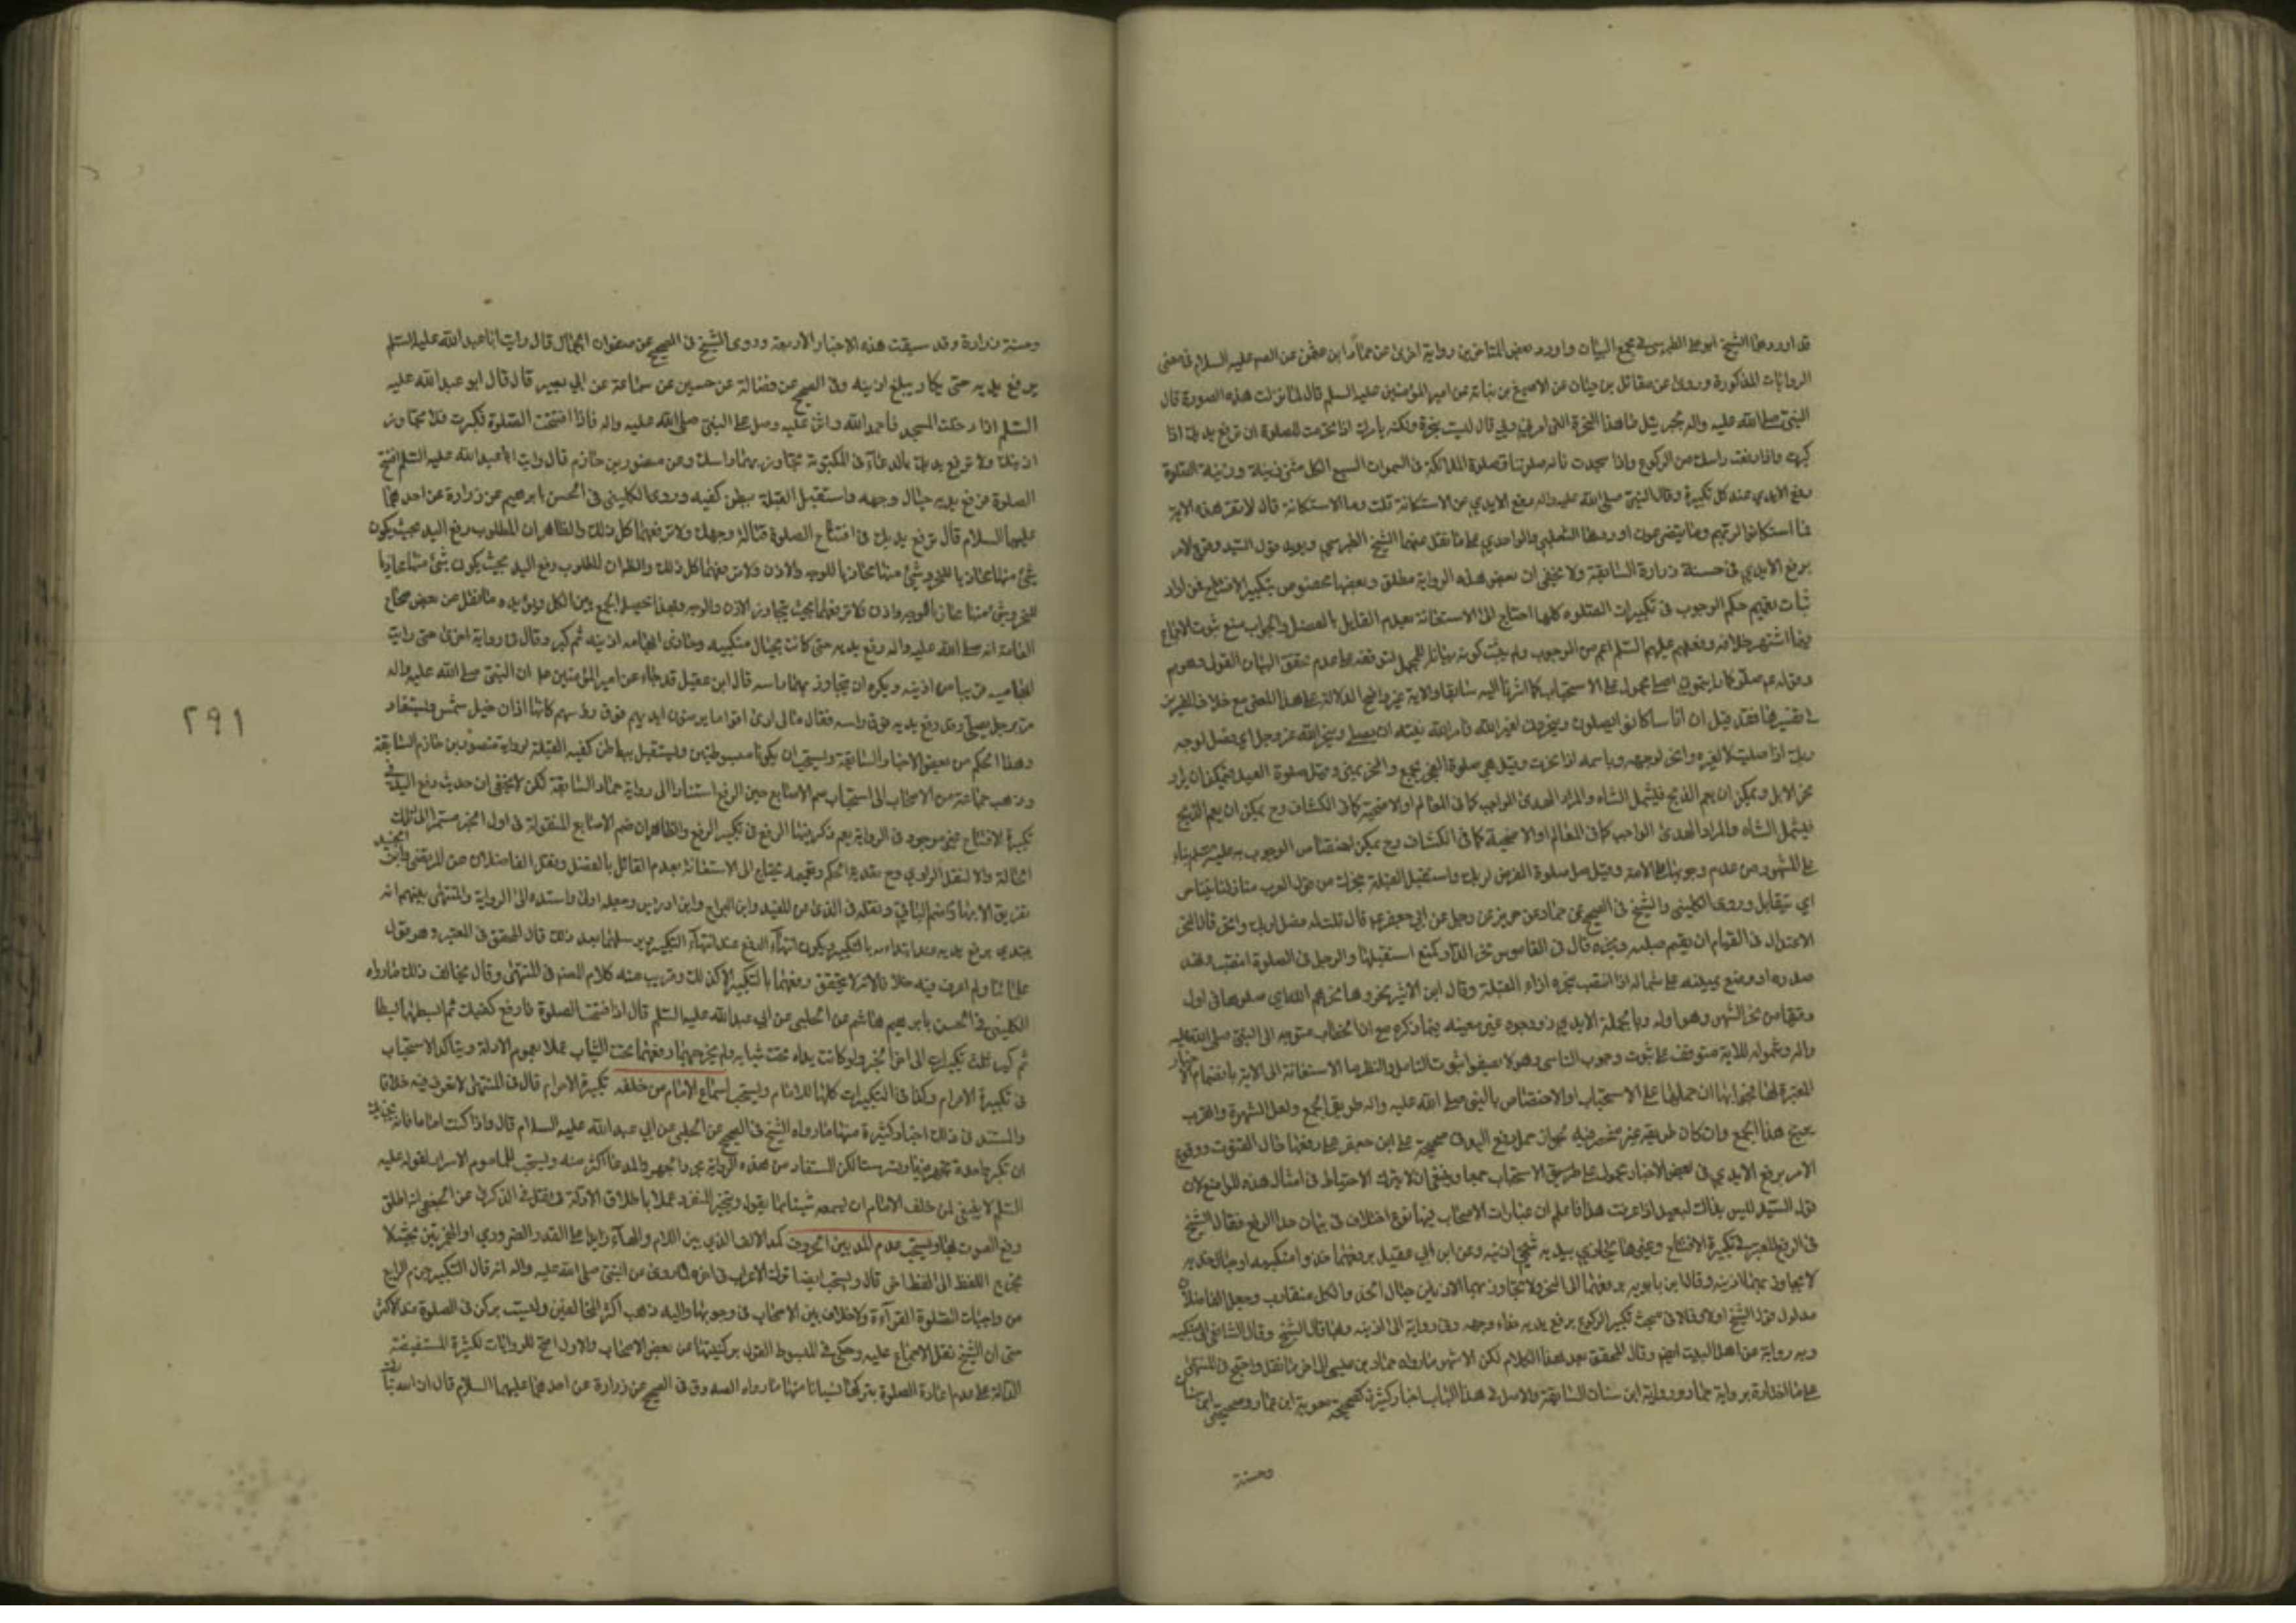 قد اورد هذا الشيخ ابو علي الطبرسي في مجمع البيان واورد بعض المتاخرين رواية اخرى عن عن الصم عليه السلام في معنى
الروايات المذكورة وروى عن مقاتل بن حيان عن الاصبغ بن نباتة عن امير المؤمنين عليه السلم قال لما نزلت هذه السورة قال
النبي صلى الله عليه واله لجبرئيل ما هذه النحيرة التي امرني ربي قال ليست بنحيرة ولكنه يامرك اذا تحرمت للصلوة ان ترفع يديك اذا
كبرت واذا رفعت راسك من الركوع واذا سجدت فانه صلوتنا وصلوة الملائكة في السموات السبع لكل شئ زينة وزينة الصلوة
رفع الايدي عند كل تكبيرة وقال النبي صلى الله عليه واله رفع الايدي من الاستكانة قلت وما الاستكانة قال لا تقرء هذه الاية
فما استكانوا لربهم وما يتضرعون اوردها الثعلبي والواحدي على ما نقل عنهما الشيخ الطبرسي ويؤيد قول السيد وقوع الامر
برفع الايدي في حسنة زرارة السابقة ولا يخفى ان بعض هذه الرواية مطلق وبعضها مخصوص بتكبير الافتتاح فمن اراد
اثبات تعميم حكم الوجوب في تكبيرات الصلوة كلها احتاج الى الاستعانة بعدم القايل بالفصل والجواب منع ثبوت الاجماع
فيما اشتهر خلافه وفعلهم عليهم السلم اعم من الوجوب ولم يثبت كونه بيانا للمجمل لتوقفه على عدم تحقق البيان القولي وهو م
وقوله عم صلوا كما رايتموني اصلي محمول على الاستحباب كما اشرنا اليه سابقا والاية غير واضح الدلالة على هذا المعنى مع خلاف المفسرين
في تفسيرها فقد قيل ان اناسا كانوا يصلون وينحرون لغير الله فامر الله نبيه ان يصلي وينحر لله عز وجل اي فصل لوجه
ربك اذا صليت لا لغيره وانحر لوجهه وباسمه اذا نحرت وقيل هي صلوة الفجر بجمع والنحر بمنى وقيل صلوة العيد فيمكن ان يراد
نحر الابل ويمكن ان يعم الذبح فيشمل الشاه والمراد الهدي الواجب كما في المعالم او الاضحية كما في الكشاف وح يمكن ان يعم الذبح
فيشمل الشاه والمراد الهدي الواجب كما في المعالم او الاضحية كما في الكشاف وح يمكن اختصاص الوجوب به عليه السلم بناء
على المشهور من عدم وجوبها على الامة وقيل صل صلوة الفرض لربك واستقبل القبلة بنحرك من قول العرب منازلنا تتناحر
اي تتقابل وروى الكليني والشيخ في الصحيح عن حماد عن حريز عن رجل عن ابي جعفر عم قال قلت له فصل لربك وانحر قال النحر
الاعتدال في القيام ان يقيم صلبه ونحره قال في القاموس نحر الدار كمنع استقبلها والرجل في الصلوة انتصب ونهد
صدره او وضع يمينه على شماله او انتصب بنحره ازاء القبلة وقال ابن الاثير نحروها نحرهم الله اي صلوها في اول
وقتها من نحر الشهر وهو اوله وبالجملة الاية ذو وجوه غير معينه فيما ذكره مع ان الخطاب متوجه الى النبي صلى الله عليه
واله وشموله للامة متوقف على ثبوت وجوب التاسي وهو لا يصفو ثبوت التامل والنظر اما الاستعانة الى الاية بانضمام الاخبار
المعتبرة لها فجوابها ان حملها على الاستحباب او الاختصاص بالنبي صلى الله عليه واله طريق الجمع ولعل الشهرة والقرب
يرجح هذا الجمع وان كان طريقه غير منحصر فيه لجواز حمل رفع اليد في صحيحة علي ابن جعفر على رفعها حال القنوت ووقوع
الامر برفع الايدي في بعض الاخبار محمول على طريق الاستحباب جمعا وينبغي ان لا يترك الاحتياط في امثال هذه المواضع لان
قول السيد ليس بذاك البعيد اذا عرفت هذا فاعلم ان عبارات الاصحاب فيها نوع اختلاف في بيان حد الرفع فقال الشيخ
في الرفع المعتبر في تكبيرة الافتتاح وغيرها يحاذي بيديه شحمي اذنيه وعن ابن ابي عقيل يرفعهما حذو منكبيه او حيال خديه
لا يجاوز بهما اذنيه وقال ابن بابويه يرفعهما الى النحر ولا يتجاوز بهما الاذنين حيال الخد والكل متقارب وجعل الفاضلان
مدلول قول الشيخ اولى وقالا في بحث تكبير الركوع يرفع يديه حذاء وجهه وفي رواية الى اذنيه وبها قال الشيخ وقال الشافعي الى منكبيه
وبه رواية عن اهل البيت ايضا وقال المحقق بعد هذا الكلام لكن الاشهر ما رواه حماد بن عيسى الى اخر ما نقل واحتج في المنتهى
على ما اختاره برواية حماد ورواية ابن سنان السابقة والاصل في هذا الباب اخبار كثيرة كصحيحة معوية ابن عمار وصحيحتي ابن سنان
وحسنة
وحسنة زرارة وقد سبقت هذه الاخبار الاربعة وروى الشيخ في الصحيح عن صفوان الجمال قال رايت ابا عبد الله عليه السلم
يرفع يديه حتى يكاد يبلغ اذنيه وفي الصحيح عن فضالة عن حسين عن سماعة عن ابي بصير قال قال ابو عبد الله عليه
السلم اذا دخلت المسجد فاحمد الله واثن عليه وصل على النبي صلى الله عليه واله فاذا افتتحت الصلوة فكبرت فلا تجاوز
اذنيك ولا ترفع يديك بالدعاء في المكتوبة تجاوز بهما راسك وعن منصور بن حازم قال رايت ابا عبد الله عليه السلم افتتح
الصلوة فرفع يديه حيال وجهه واستقبل القبلة ببطن كفيه وروى الكليني في الحسن بابرهيم عن زرارة عن احدهما
عليهما السلام قال ترفع يديك في افتتاح الصلوة قبالة وجهك ولا ترفعهما كل ذلك والظاهر ان المطلوب رفع اليد بحيث يكون
شئ منها محاذيا للنحر وشئ منها محاذيا للوجه والاذن ولا ترفعهما كل ذلك والظ ان المطلوب رفع اليد بحيث يكون شئ منها محاذيا
للنحر وشئ منها محاذيا للوجه واذن ولا ترفعهما بحيث يتجاوز الاذن والوجه وبهذا تحصيل الجمع بين الكل ويؤيده ما نقل عن بعض صحاح
العامة انه صلى الله عليه واله رفع يديه حتى كانت بحيال منكبيه وحاذى ابهاميه اذنيه ثم كبر وقال في رواية اخرى حتى رايت
ابهاميه قريبا من اذنيه ويكره ان يتجاوز بهما راسه قال ابن عقيل قد جاء عن امير المؤمنين عم ان النبي صلى الله عليه واله
مر برجل يصلي وقد رفع يديه فوق راسه فقال مالي ارى اقواما يرفعون ايديهم فوق رؤسهم كانها اذان خيل شمس ويستفاد
وهذا الحكم من بعض الاخبار السابقة ويستحب ان يكونا مبسوطتين ويستقبل بباطن كفيه القبلة لرواية منصور بن حازم السابقة
وذهب جماعة من الاصحاب الى استحباب ضم الاصابع حين الرفع استنادا الى رواية حماد السابقة لكن لا يخفى ان حديث رفع اليد في
تكبيرة الافتتاح غير موجود في الرواية نعم ذكر فيها الرفع في تكبير الرفع والظاهر ان ضم الاصابع المنقولة في اول الخبر مستمر الى تلك
الحالة والا لنقل الراوي وح تعدية الحكم وتعميمه يحتاج الى الاستعانة بعدم القائل بالفصل ونقل الفاضلان عن المرتضى وابن الجنيد
تفريق الابهام وضم الباقي ونقله في الذكرى عن المفيد وابن البراج وابن ادريس وجعله اولى واسنده الى الرواية والمنتهى بعينهم انه
يبتدي برفع يديه عند ابتدائه بالتكبير ويكون انتهاء الرفع عند انتهاء التكبير ويرسلهما بعد ذلك قال المحقق في المعتبر وهو قول
علمائنا ولم اعرف فيه خلافا لانه لا يتحقق رفعهما بالتكبير الا كذلك وقريب منه كلام المصم في المنتهى وقال يخالف ذلك ما رواه
الكليني في الحسن بابرهيم هاشم عن الحلبي عن ابي عبد الله عليه السلم قال اذا افتتحت الصلوة فارفع كفيك ثم ابسطهما بسطا
ثم كبر ثلث تكبيرات الى اخر الخبر ولو كانت يداه تحت ثيابه ولم يخرجهما رفعهما تحت الثياب عملا بعموم الادلة ويتاكد الاستحباب
في تكبيرة الاحرام وكذا في التكبيرات كلها للامام ويستحب اسماع الامام من خلفه تكبيرة الاحرام قال في المنتهى لا نعرف فيه خلافا
والمستند في ذلك اخبار كثيرة منها ما رواه الشيخ في الصحيح عن الحلبي عن ابي عبد الله عليه السلام قال واذا كنت اماما فانه يجزيك
ان تكبر واحدة تجهر فيها وتسر ستا لكن المستفاد من هذه الرواية مجرد الجهر والمدعى اكثر منه ويستحب للماموم الاسرار لقوله عليه
السلم لا ينبغي لمن خلف الامام ان يسمعه شيئا مما يقول ويتخير المنفرد عملا باطلاق الادلة ونقل في الذكرى عن الجعفي انه اطلق
رفع الصوت بها ويستحب عدم المد بين الحروف كمد الالف الذي بين اللام والهاء زايدا على القدر الضروري او المخرجين بحيث لا
يخرج اللفظ الى لفظ اخر قال ويستحب ايضا ترك الاعراب في اخره لما روى عن النبي صلى الله عليه واله انه قال التكبير جزم الرابع
من واجبات الصلوة القرآءة ولا خلاف بين الاصحاب في وجوبها واليه ذهب اكثر المخالفين وليست بركن في الصلوة عند الاكثر
حتى ان الشيخ نقل الاجماع عليه وحكى في المبسوط القول بركنيتها عن بعض الاصحاب والاول اصح للروايات لكثيرة المستفيضة
الدالة على عدم اعادة الصلوة بتركها نسيانا منها ما رواه الصدوق في الصحيح عن زرارة عن احدهما عليهما السلام قال ان الله تبارك
٢٩١